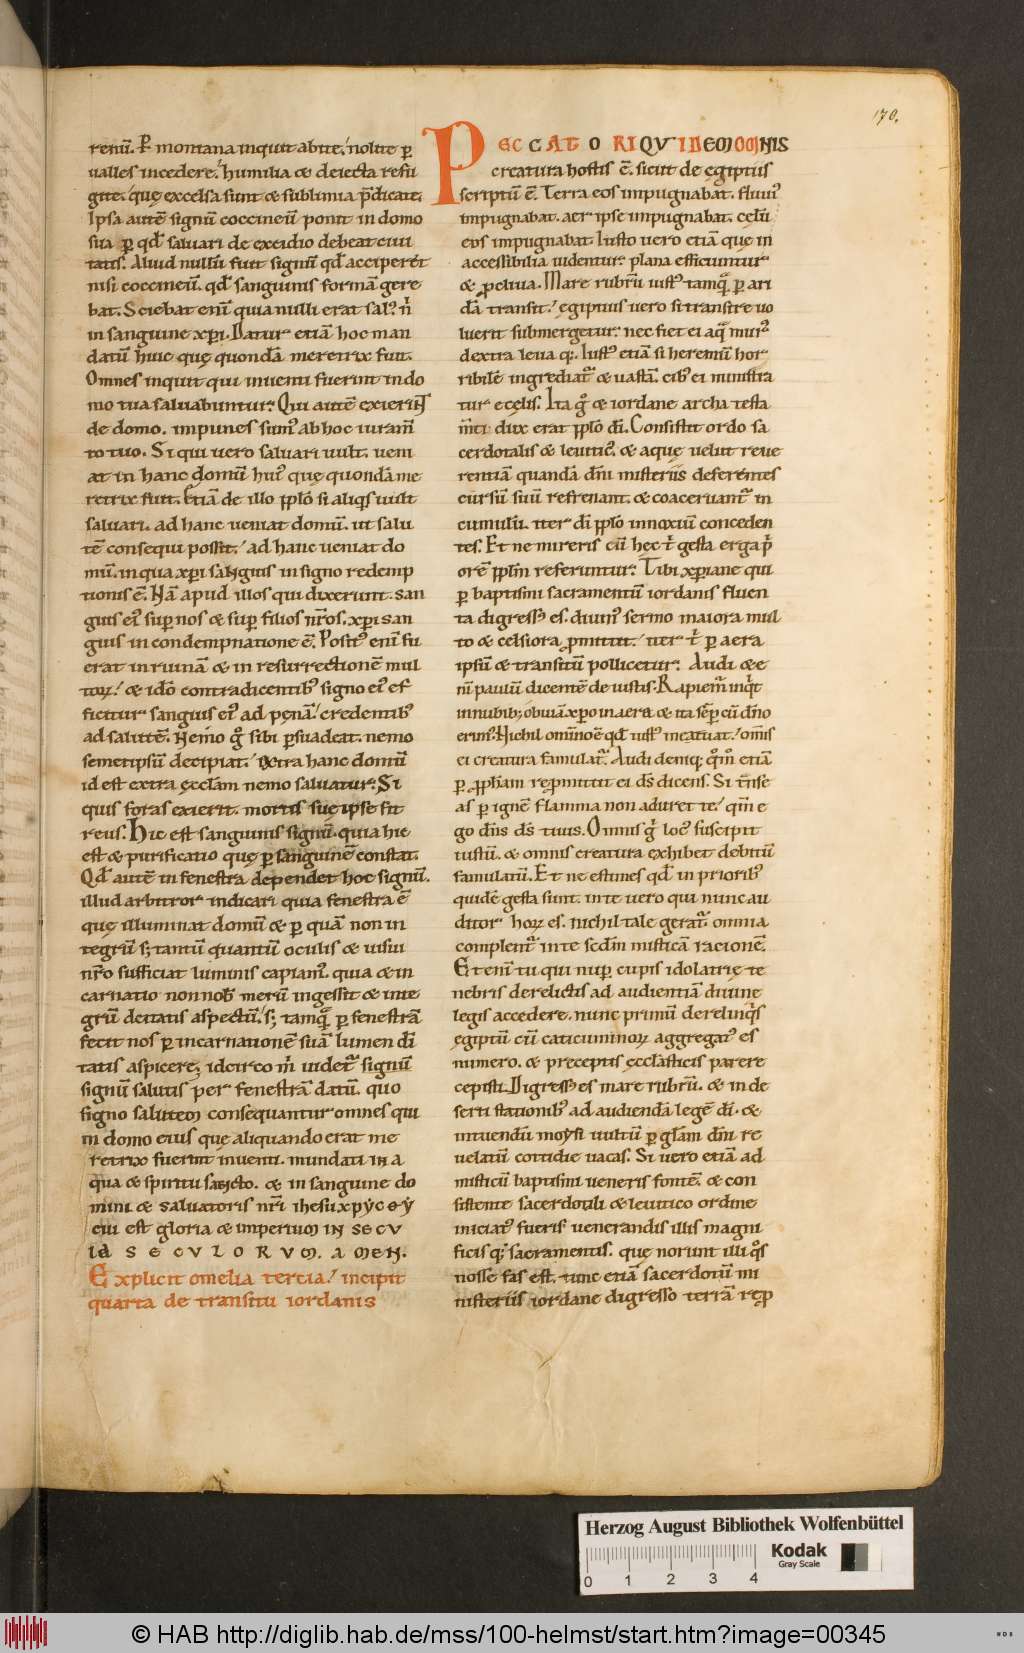 170.
renū. P montana inquit abite./ nolite ꝑ
ualles incedere./ humilia & deiecta refu
gite. quę excelsa sunt & sublimia p̄dicate.
Ipsa autē signū coccineū ponit in domo
sua ꝑ qd̄ saluari de excidio debeat ciui
tatis. Aliud nullū fuit signū qd̄ acciperet
nisi coccineū. qd̄ sanguinis formā gere
bat. Sciebat enī quia nulli erat salꝰ. n̄
in sanguine xp̄i. Datur etiā hoc man
datū huic quę quondā meretrix fuit.
Omnes inquit qui inuenti fuerint in do
mo tua saluabuntur. Qui autē exierint
de domo. impunes sumꝰ ab hoc iuram̄
to tuo. Si qui uero saluari uult. ueni
at in hanc domū huiꝰ quę quondā me
retrix fuit. Etiā de illo pplō si aliq̄s uult
saluari. ad hanc ueniat domū. ut salu
tē consequi possit./ ad hanc ueniat do
mū. in qua xp̄i sanguis in signo redemp
tionis ē. Nā apud illos qui dixerunt. san
guis eiꝰ suꝑ nos & suꝑ filios nr̄os. xp̄i san
guis in condempnatione ē. Positꝰ enī fu
erat in ruinā & in resurrectionē mul
toꝝ./ & idō contradicentibꝰ signo eiꝰ ef
ficitur sanguis eiꝰ ad pęnā./ credentibꝰ
ad salutē. Nemo g̊ sibi ꝑsuadeat. nemo
semetipsū decipiat./ extra hanc domū
id est extra ęccłam nemo saluatur. Si
quis foras exierit. mortis suę ipse fit
reus. Hic est sanguinis signū. quia hic
est & purificatio quę ꝑ sanguinē constat.
Qd̄ autē in fenestra dependet hoc signū.
illud arbitror indicari quia fenestra ē
quę illuminat domū & ꝑ quā non in
tegrū s; tantū quantū oculis & uisui
nr̄o sufficiat luminis capiamꝰ. quia & in
carnatio non nob̄ merū ingessit & inte
grū deitatis aspectū./ s; tamq̄ ꝑ fenestrā
fecit nos ꝑ incarnationē suā lumen di
tatis aspicere; idcirco m̄ uidet᷑ signū
signū salutis per fenestrā datū. quo
signo salutem consequantur omnes qui
in domo eius quę aliquando erat me
retrix fuerint inuenti. mundati in a
qua & spiritu sancto. & in sanguine do
mini & saluatoris nr̄i ihesu xp̄y c & y
cui est gloria & imperium in secu
la seculorum. amen.
Explicit omelia tercia./ incipit
quarta de transitu iordanis
PECCATORI QUIDEM OMNIS
creatura hostis ē. sicut de ęgiptiis
scriptū ē. Terra eos impugnabat. fluuiꝰ
impugnabat. aer ipse impugnabat. cęlū
eos impugnabat. Iusto uero etiā que in
accessibilia uidentur plana efficiuntur
& ꝓcliua. Mare rubrū iustꝰ tamq̄ ꝑ ari
dā transit./ ęgiptius uero si transire uo
luerit submergetur. nec fiet ei aq̄ murꝰ
dextra leua q;. Iustꝰ etiā si heremū hor
ribilē ingrediat᷑ & uastā. cibꝰ ei ministra
tur e cęlis. Ita g̊ & iordane archa testa
m̄ti dux erat pplō di. Consistit ordo sa
cerdotalis & leuiticꝰ. & aquę uelut reue
rentiā quandā dn̄i misteriis deferentes
cursū suū refrenant. & coaceruant᷑ in
cumulū. iter dī pplō innoxiū conceden
tes. Et ne mireris cū hęc t̄ gesta erga p̄
orē pplm̄ referuntur. Tibi xp̄iane qui
ꝑ baptismi sacramentū iordanis fluen
ta digressꝰ es. diuinꝰ sermo maiora mul
to & celsiora ꝓmittit./ iter t̄ ꝑ aera
ipsū & transitū pollicetur. Audi &e
nī paulū dicentē de iustis. Rapiem᷑ inq̄t
in nubibꝫ obuiā xp̄o in aera & ita sēꝑ cū dn̄o
erimꝰ. Nichil om̄ino ē qd̄ iustꝰ metuat./ om̄is
ei creatura famulat᷑. Audi deniq; q̊m̄ etiā
ꝑ ꝓph̄am reꝓmittit ei ds̄ dicens. Si t̄nse
as ꝑ ignē flamma non aduret te./ qm̄ e
go dn̄s ds̄ tuus. Omnis g̊ locꝰ suscipit
iustū. & omnis creatura exhibet debitū
famulatū. Et ne estimes qd̄ in prioribꝰ
quidē gesta sunt. in te uero qui nunc au
ditor hoꝝ es. nichil tale gerat᷑. omnia
complent᷑ in te scd̄m misticā racionē.
Etenī tu qui nuꝑ cupis idolatrię te
nebris derelictis ad audientiā diuine
legis accedere. nunc primū derelinq̄s
ęgiptū cū caticuminoꝝ aggregatꝰ es
numero. & preceptis ęccłasticis parere
cepisti. Digressꝰ es mare rubrū. & in de
serti stationibꝰ ad audiendā legē dī. &
intuendū moysi uultū ꝑ głam dn̄i re
uelatū cottidie uacas. Si uero etiā ad
misticū baptismi ueneris fontē. & con
sistente sacerdotali & leuitico ordine
iniciatꝰ fueris uenerandis illis magni
ficis q; sacramentis. quę norunt illi q̄s
nosse fas est. tunc etiā sacerdotū mi
nisteriis iordane digresso terrā reꝓ
Herzog August Bibliothek Wolfenbüttel
Kodak
Gray Scale
0 1 2 3 4
© HAB http://diglib.hab.de/mss/100-helmst/start.htm?image=00345